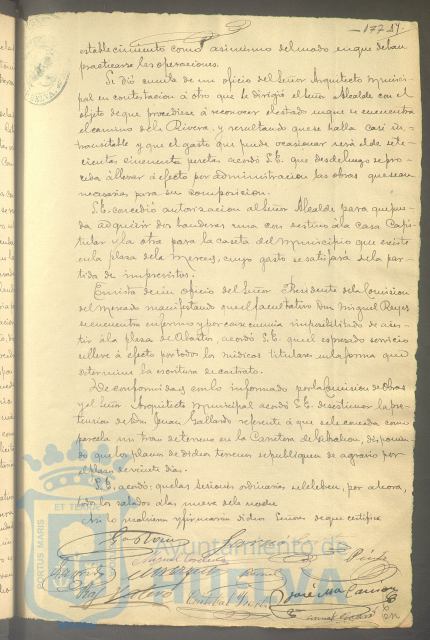 177
establecimiento como asimismo del modo en que deban
practicarse las operaciones.
Se dió cuenta de un oficio del Señor Arquitecto Munici-
pal en contestacion á otro que le dirigió el Señor Alcalde con el
objeto de que procediese á reconocer el estado en que se encuentra
el camino de la Rivera, y resultando que se halla casi in-
transitable y que el gasto que puede ocasionar será el de sete-
cientas cincuenta pesetas acordó S.E. que desde luego se pro-
ceda á llevar á efecto por administracion las obras que sean
necesarias para su composicion.
S.E. concedió autorizacion al Señor Alcalde para que pue-
da adquirir dos banderas una con destino á la Casa Capi-
tular y la otra para la caseta del Municipio que existe
en la plaza de la Merced, cuyo gasto se satisfará de la par-
tida de imprevistos.
En vista de un oficio del Señor Presidente de la Comision
del Mercado manifestando que el facultativo Don Miguel Reyes
se encuentra enfermo y por consecuencia imposibilitado de asis-
tir á la plaza de Abastos, acordó S.E. que el espresado servicio
se lleve á efecto por todos los médicos titulares en la forma que
determina la escritura de contrato.
De conformidad con lo informado por la Comision de Obras
y el Señor Arquitecto Municipal acordó S.E. desestimar la pre-
tension de Don Juan Gallardo referente á que se le conceda como
parcela un trozo de terreno en la Carretera de Gibraleon, disponien-
do que los planos de dichos terrenos se publiquen de agravio por
el plazo de veinte dias.
S.E. acordó: que las sesiones ordinarias se celebren, por ahora,
todos los sabados a las nueve de la noche
Asi lo
y firmarán dichos Señores de que certifico
José
Ayuntamiento de
HUELVA
PORTUS MARIS
ET TERRAE